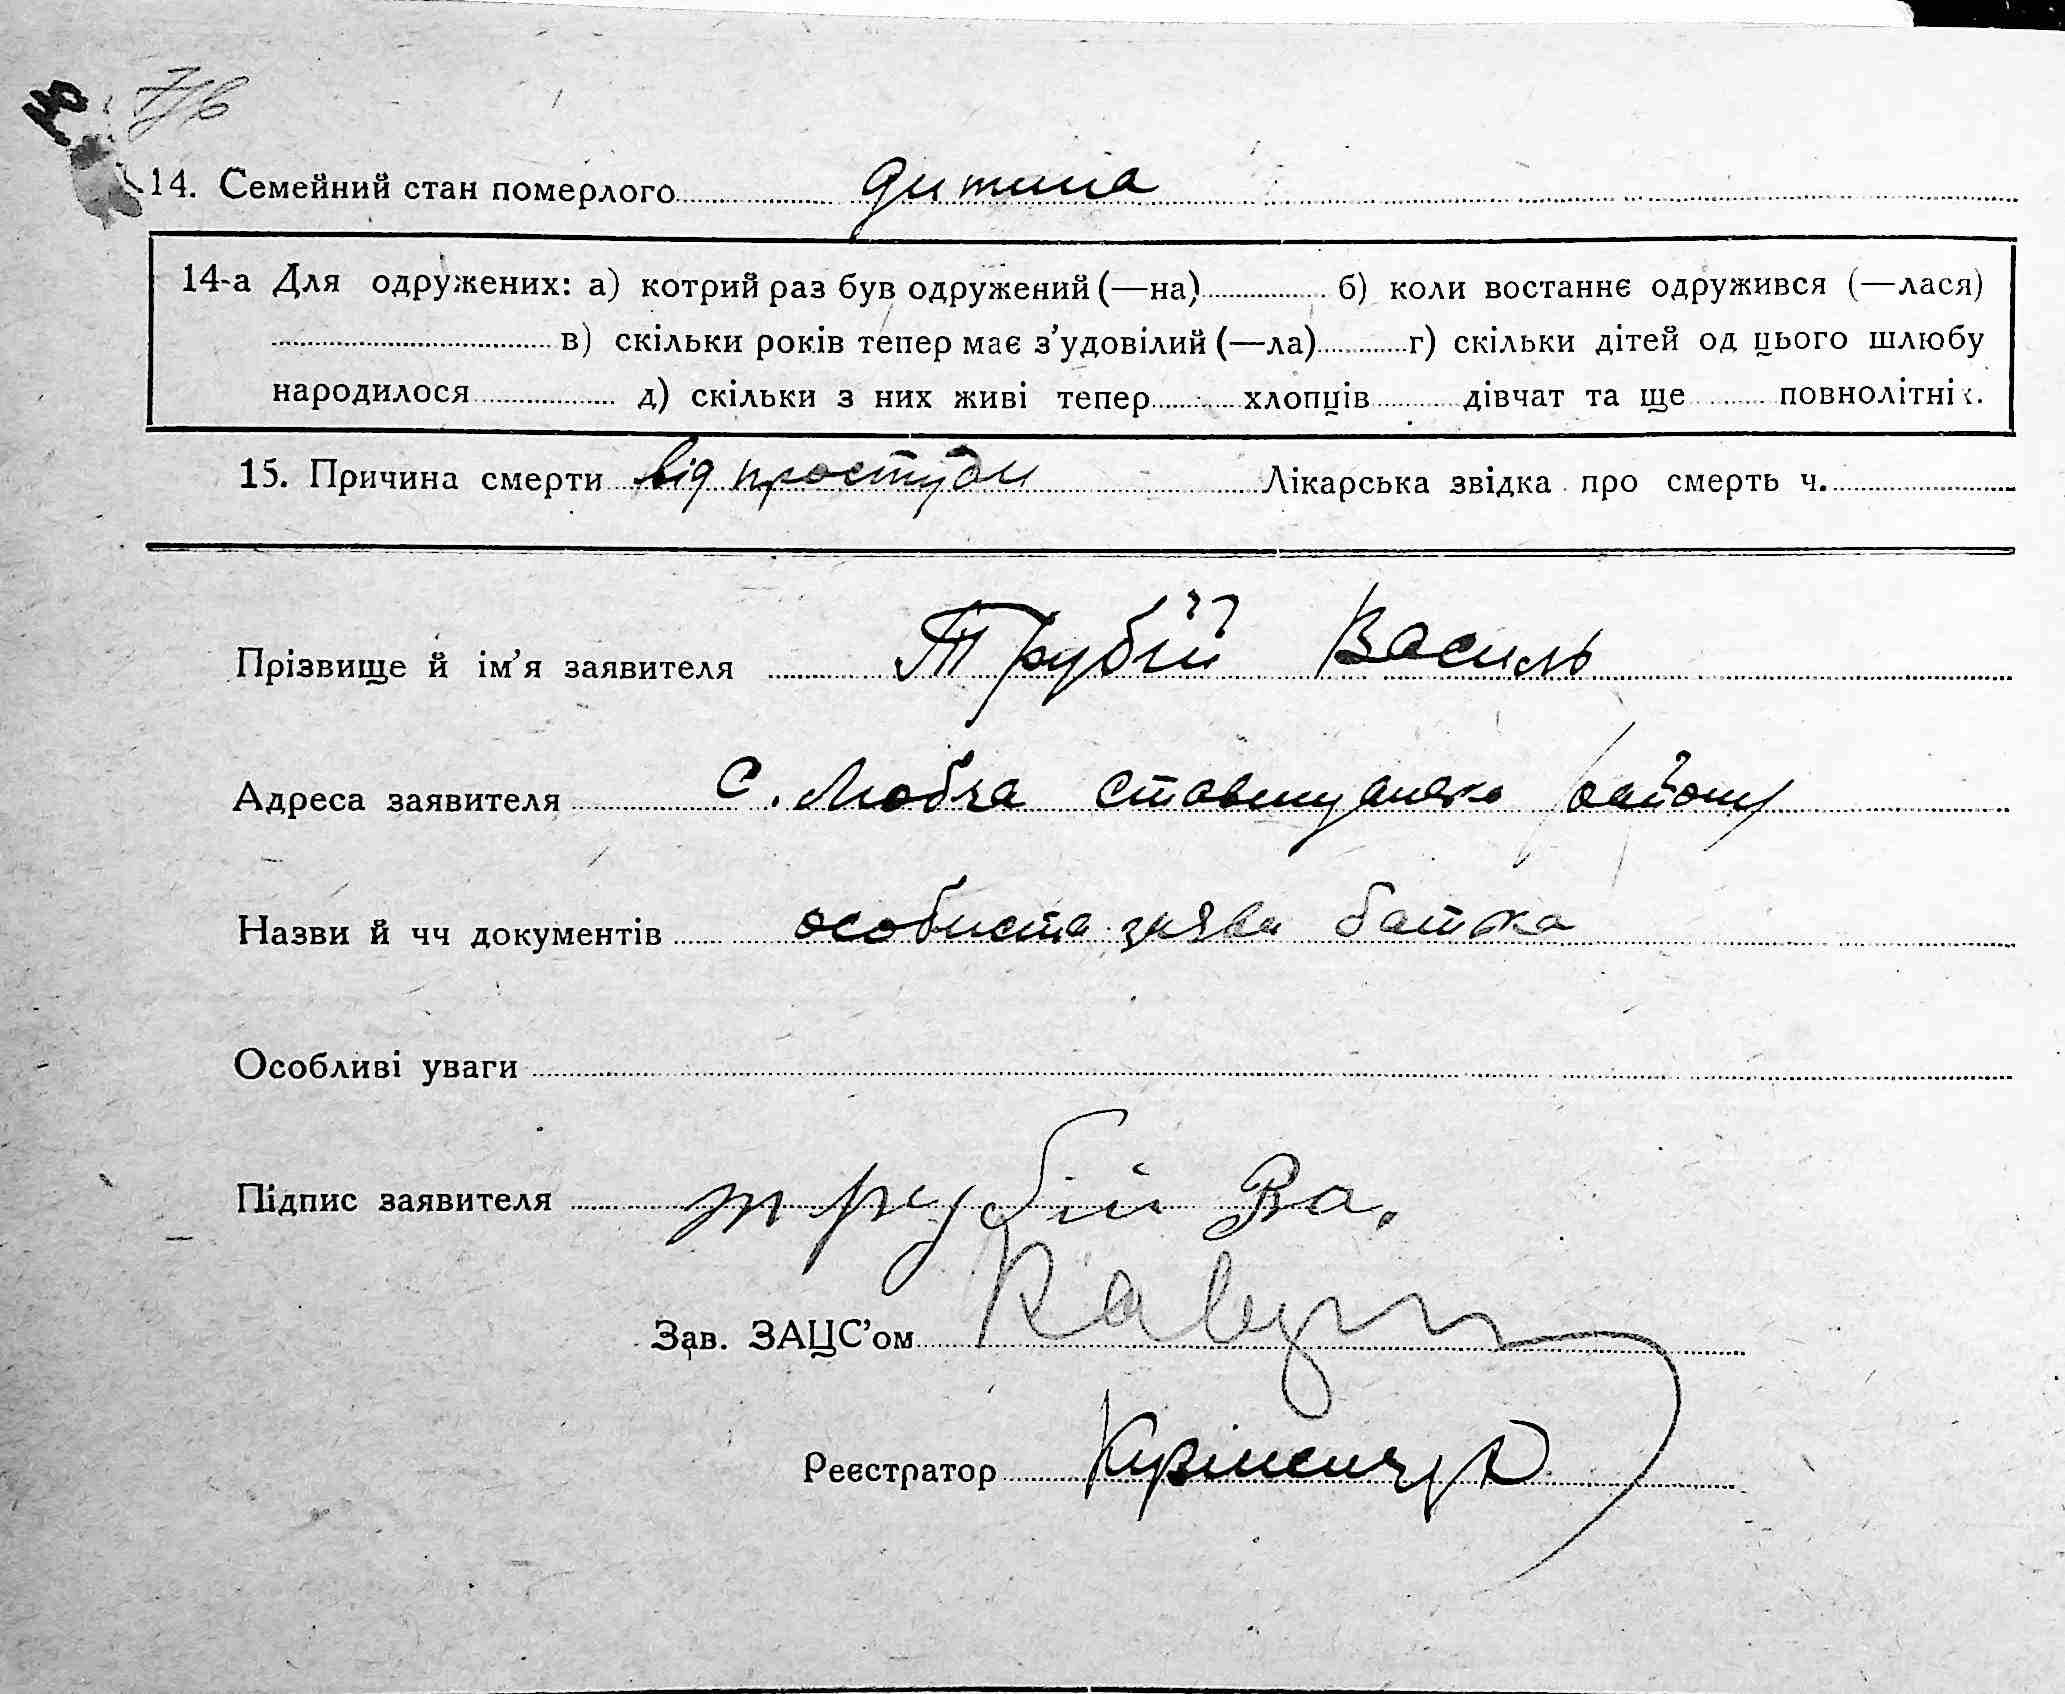 14. Семейний стан померлого дитина
14-а Для одружених: а) котрий раз був одружений (—на) б) коли востаннє одружився (—лася)
в) скільки років тепер має з’удовілий (—ла) г) скільки дітей од цього шлюбу
народилося д) скільки з них живі тепер хлопців дівчат та ще повнолітніх.
15. Причина смерти від простуди Лікарська звідка про смерть ч.
Прізвище й ім’я заявителя Трубій Василь
Адреса заявителя с. Любча району
Назви й чч документів особиста заява батька
Особливі уваги
Підпис заявителя трубій Ва.
Зав. ЗАЦС’ом
Реєстратор